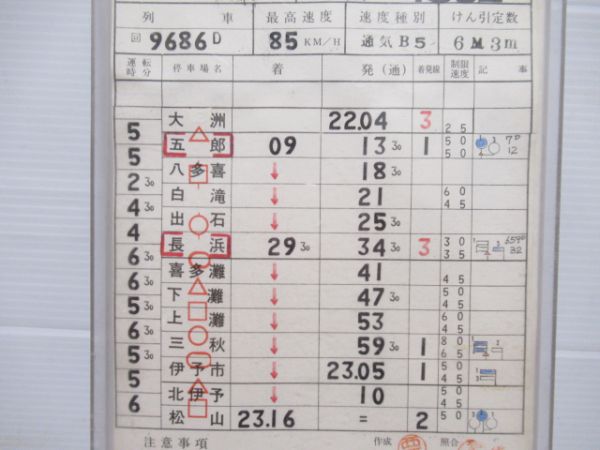 列 車 最高速度 速度種別 けん引定数
回 9686D 85 KM/H 通気B5 6M3m
運転時分 停車場名 着 発(通) 着発線 制限速度 記 事
大洲 22.04 3 25
5
五郎 09 13 30 1 50 50 7D 12
5
八多喜 ↓ 18 30
2 30
白滝 ↓ 21 60 45
4 30
出石 ↓ 25 30
4
長浜 29 30 34 30 3 30 35 659D 32
6 30
喜多灘 ↓ 41 45
6 30
下灘 ↓ 47 30 50 45
5 30
上灘 ↓ 53 60 45
6 30
三秋 ↓ 59 30 1 80 65
5 30
伊予市 ↓ 23.05 1 50 45
5
北伊予 ↓ 10 50 45
6
松山 23.16 = 2 50
注意事項 作成 照合